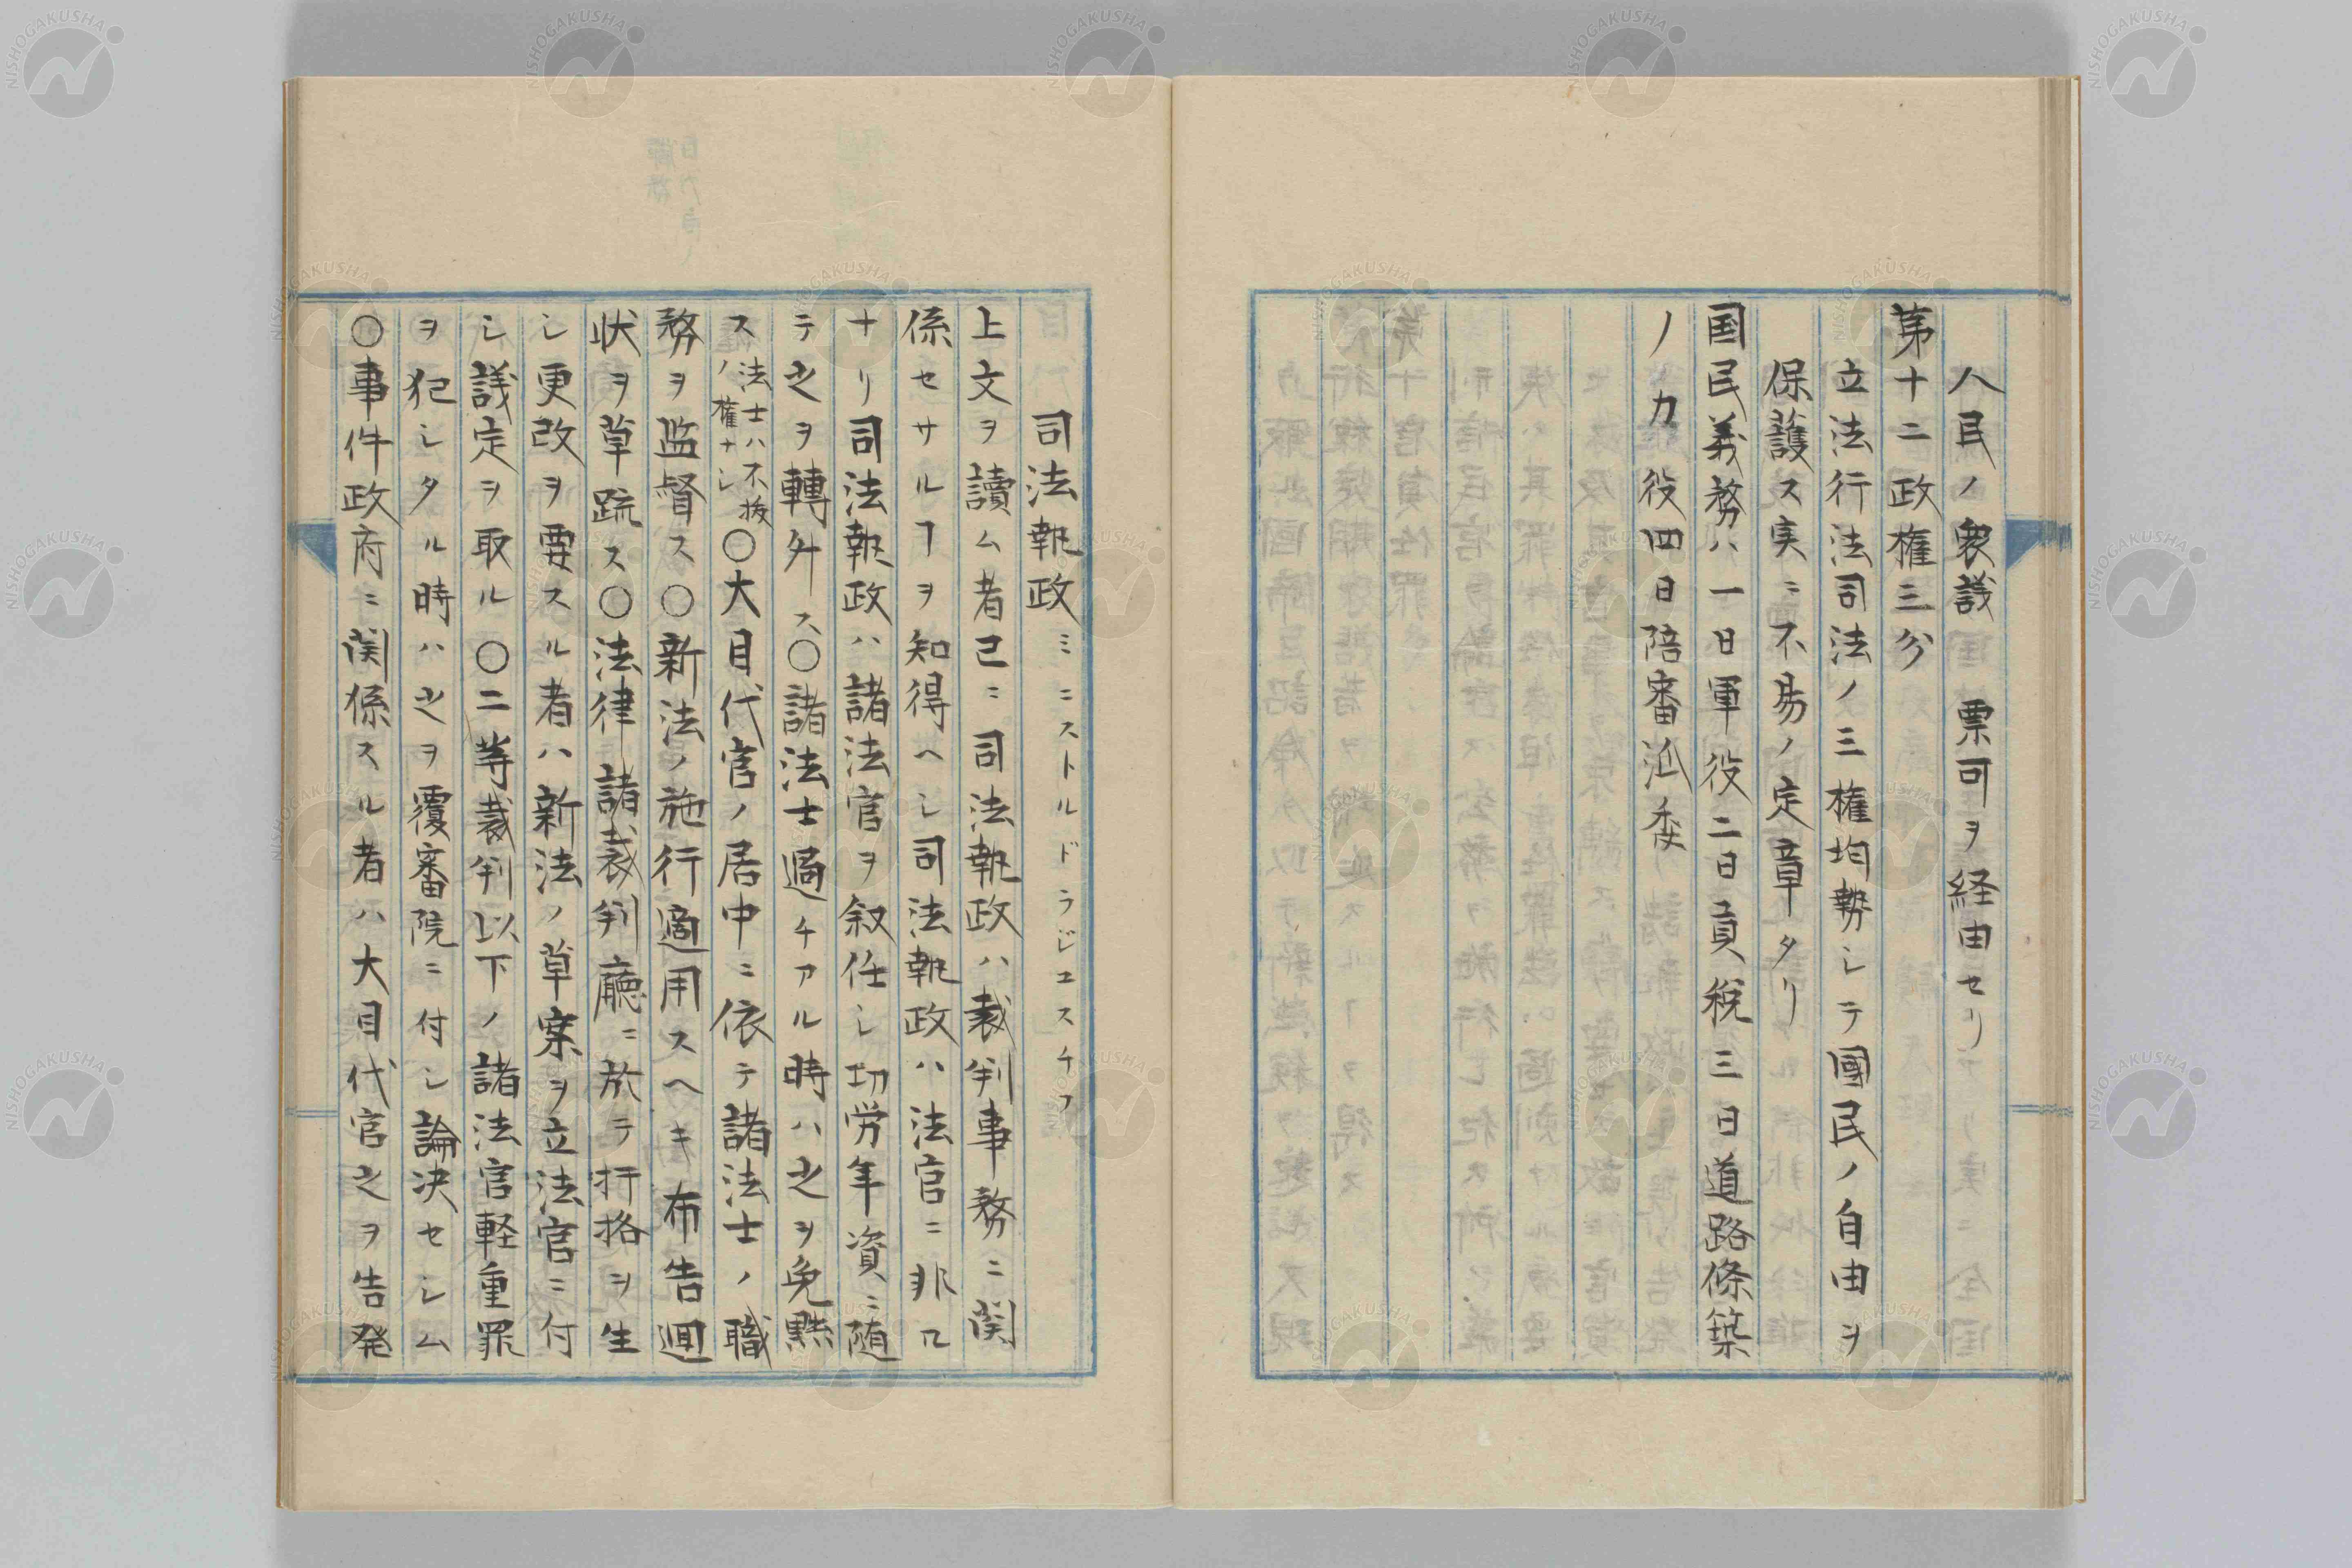 人民ノ衆議　票可ヲ経由セリ
第十二政権三分
立法行法司法ノ三権均勢シテ國民ノ自由ヲ
保護ス実ニ不易ノ定章タリ
国民義務ハ一曰軍役二曰貢税三曰道路條築
ノ力役四曰陪審
司法執政ミニストルドラジユスチフ
上文ヲ讀ム者已ニ司法執政ハ裁判事務ニ関
係セサルヿヲ知得ヘシ司法執政ハ法官ニ非ス
ナリ司法執政ハ諸法官ヲ叙任シ功労年資ニ随
テ之ヲ轉舛ス○諸法士過チアル時ハ之ヲ免黙
ス法士ハ不抜ノ権ナシ○大目代官ノ居中ニ依テ諸法士ノ職
務ヲ監督ス○新法ノ施行適用スヘキ布告廻
状ヲ草䟽ス○法律諸裁判廳ニ於テ扞格ヲ生
シ更改ヲ要スル者ハ新法ノ草案ヲ立法官ニ付
シ議定ヲ取ル○二等裁判以下ノ諸法官軽重罪
ヲ犯シタル時ハ之ヲ覆審院ニ付シ論決セシム
○事件政府ニ関係スル者ハ大目代官之ヲ告発
NISHOGAKUSHA